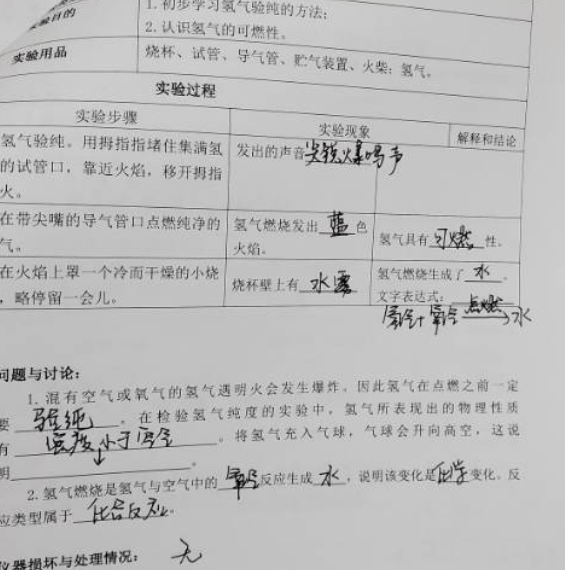 实验目的
1.初步学习氢气验纯的方法;
2.认识氢气的可燃性。
实验用品
烧杯、试管、导气管、贮气装置、火柴; 氢气。
实验过程
实验步骤
实验现象
解释和结论
氢气验纯。用拇指指堵住集满氢
的试管口，靠近火焰，移开拇指
火。
发出的声音尖锐爆鸣声
在带尖嘴的导气管口点燃纯净的
气。
氢气燃烧发出蓝色
火焰。
氢气具有可燃性。
在火焰上罩一个冷而干燥的小烧
，略停留一会儿。
烧杯壁上有水雾
氢气燃烧生成了水。
文字表达式: 点燃
氢气+氧气→水
问题与讨论:
1.混有空气或氧气的氢气遇明火会发生爆炸。因此氢气在点燃之前一定
要验纯。在检验氢气纯度的实验中，氢气所表现出的物理性质
有密度小于空气。将氢气充入气球，气球会升向高空，这说
明↓。
2.氢气燃烧是氢气与空气中的氧气反应生成水，说明该变化是化学变化。反
应类型属于化合反应。
仪器损坏与处理情况: 无